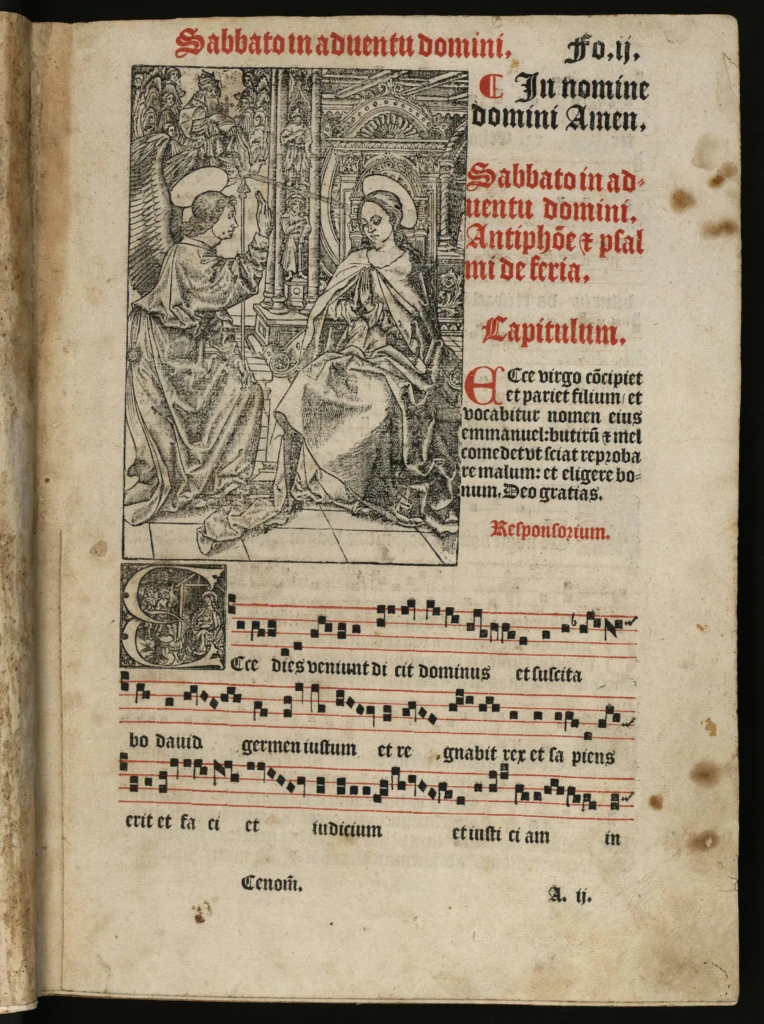 Sabbato in aduentu domini.
Fo.ij.
¶ In nomine
domini Amen.
Sabbato in ad-
uentu domini.
Antiphõe ⁊ psal
mi de feria.
Capitulum.
ECce virgo cõcipiet
et pariet filium/ et
vocabitur nomen eius
emmanuel: butirũ ⁊ mel
comedet vt sciat reproba
re malum: et eligere bo-
num. Deo gratias.
Responsorium.
ECce dies veniunt di cit dominus et suscita
bo dauid germen iustum et re gnabit rex et sa piens
erit et fa ci et iudicium et iusti ci am in
Cenom̃.
A. ij.